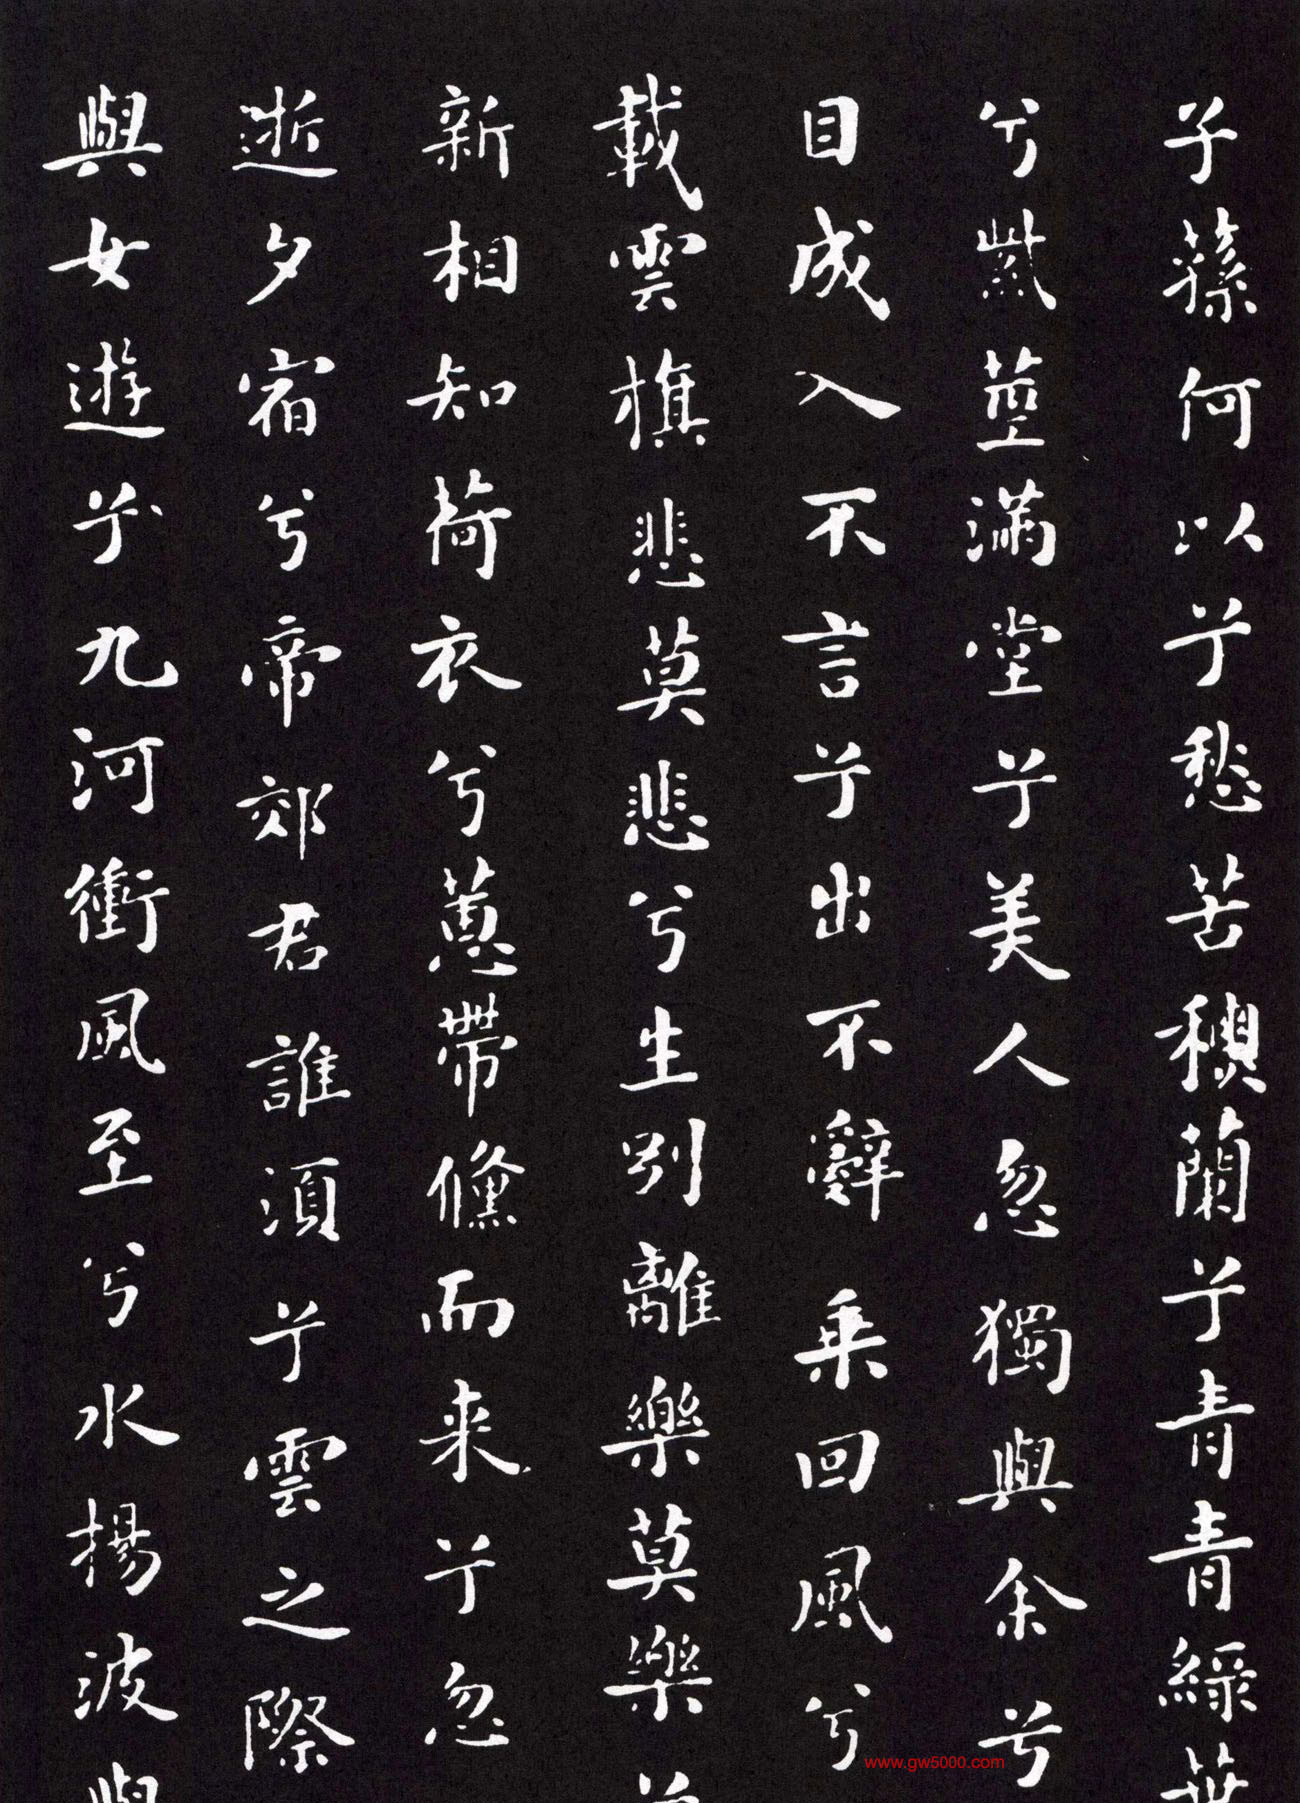 子蓀何以兮愁苦穓蘭兮青青綠葉
兮紫莖滿堂兮美人忽獨與余兮
目成入不言兮出不辭乘回風兮
載雲旗悲莫悲兮生別離樂莫樂
新相知荷衣兮蕙帶儵而来兮忽
逝夕宿兮帝郊君誰須兮雲之際
與女遊兮九河衝風至兮水揚波
www.gw5000.com